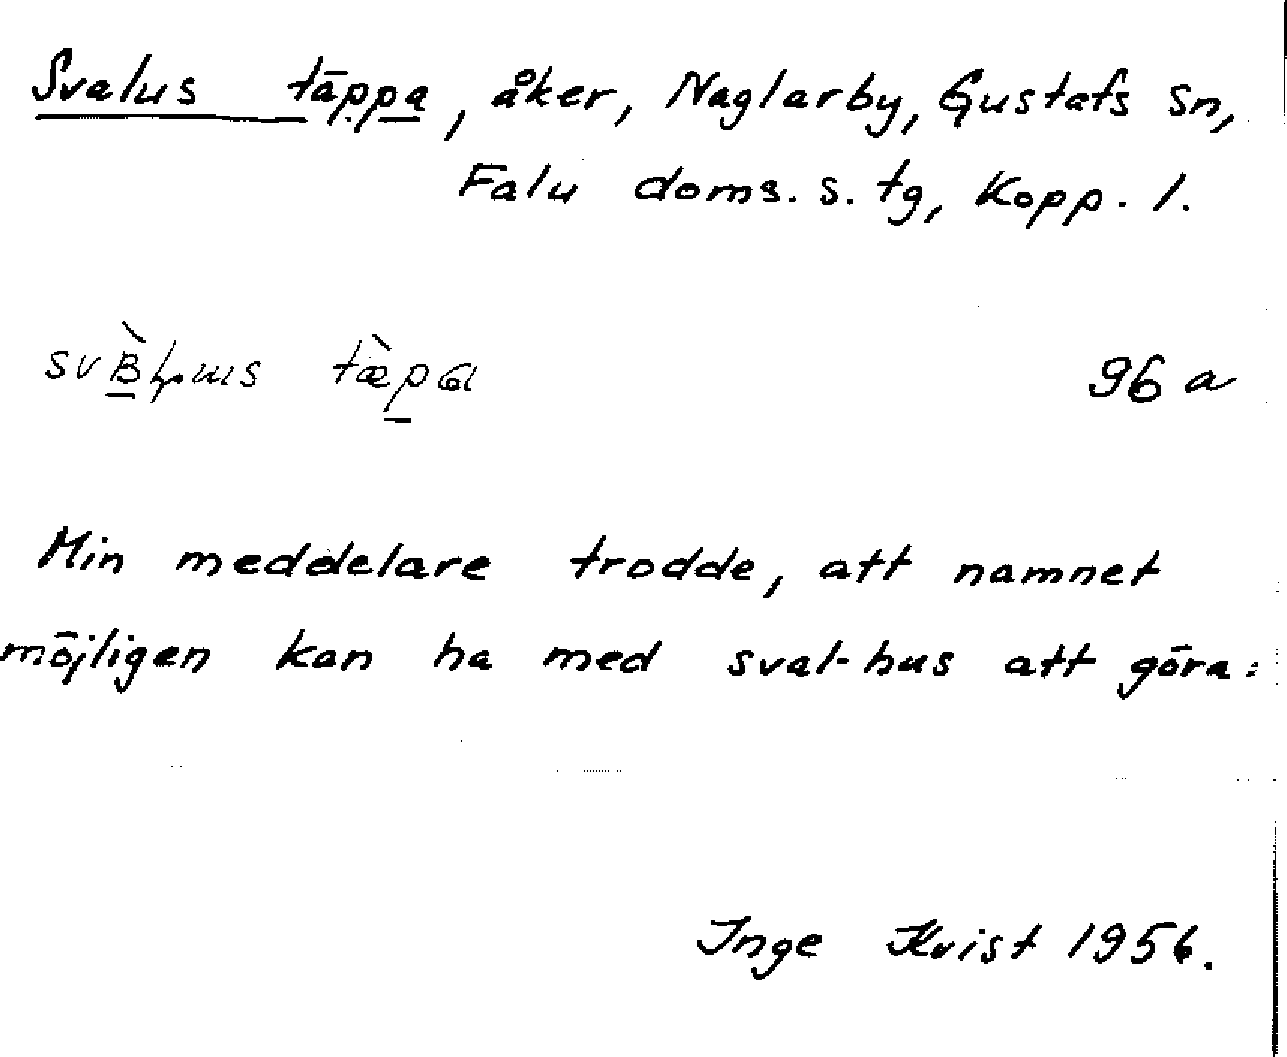 Svalus täppa, åker, Naglarby, Gustafs Sn,
Falu doms. s. tg, Kopp. l.
tæ̀pa
96 a
Min meddelare trodde, att namnet
möjligen kan ha med sval-hus att göra.
Inge Kvist 1956.